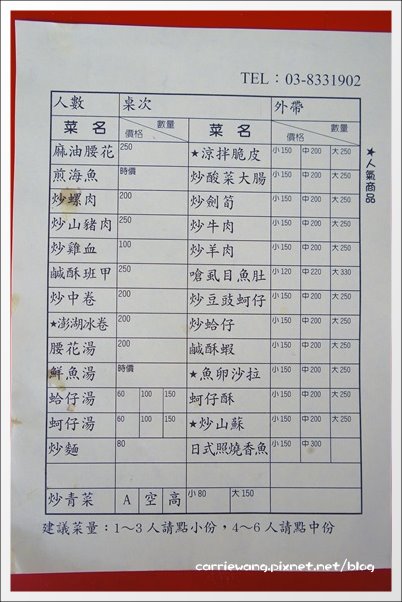 TEL：03-8331902
人數 桌次 外帶
菜名 數量 價格 菜名 數量 價格
麻油腰花 250 ★涼拌脆皮 小150 中200 大250
煎海魚 時價 炒酸菜大腸 小150 中200 大250
炒螺肉 200 炒劍筍 小150 中200 大250
炒山豬肉 250 炒牛肉 小150 中200 大250
炒雞血 100 炒羊肉 小150 中200 大250
鹹酥班甲 250 嗆虱目魚肚 小120 中220 大330
炒中卷 200 炒豆豉蚵仔 小150 中200 大250
★澎湖冰卷 200 炒蛤仔 小150 中200 大250
腰花湯 200 鹹酥蝦 小150 中200 大250
鮮魚湯 時價 ★魚卵沙拉 小150 中200 大250
蛤仔湯 60 100 150 蚵仔酥 小150 中200 大250
蚵仔湯 60 100 150 ★炒山蘇 小150 中200 大250
炒麵 80 日式照燒香魚 小150 中300
炒青菜 A 空 高 小80 大150
★人氣商品
建議菜量：1～3 人請點小份，4～6 人請點中份
carriewang.pixnet.net/blog